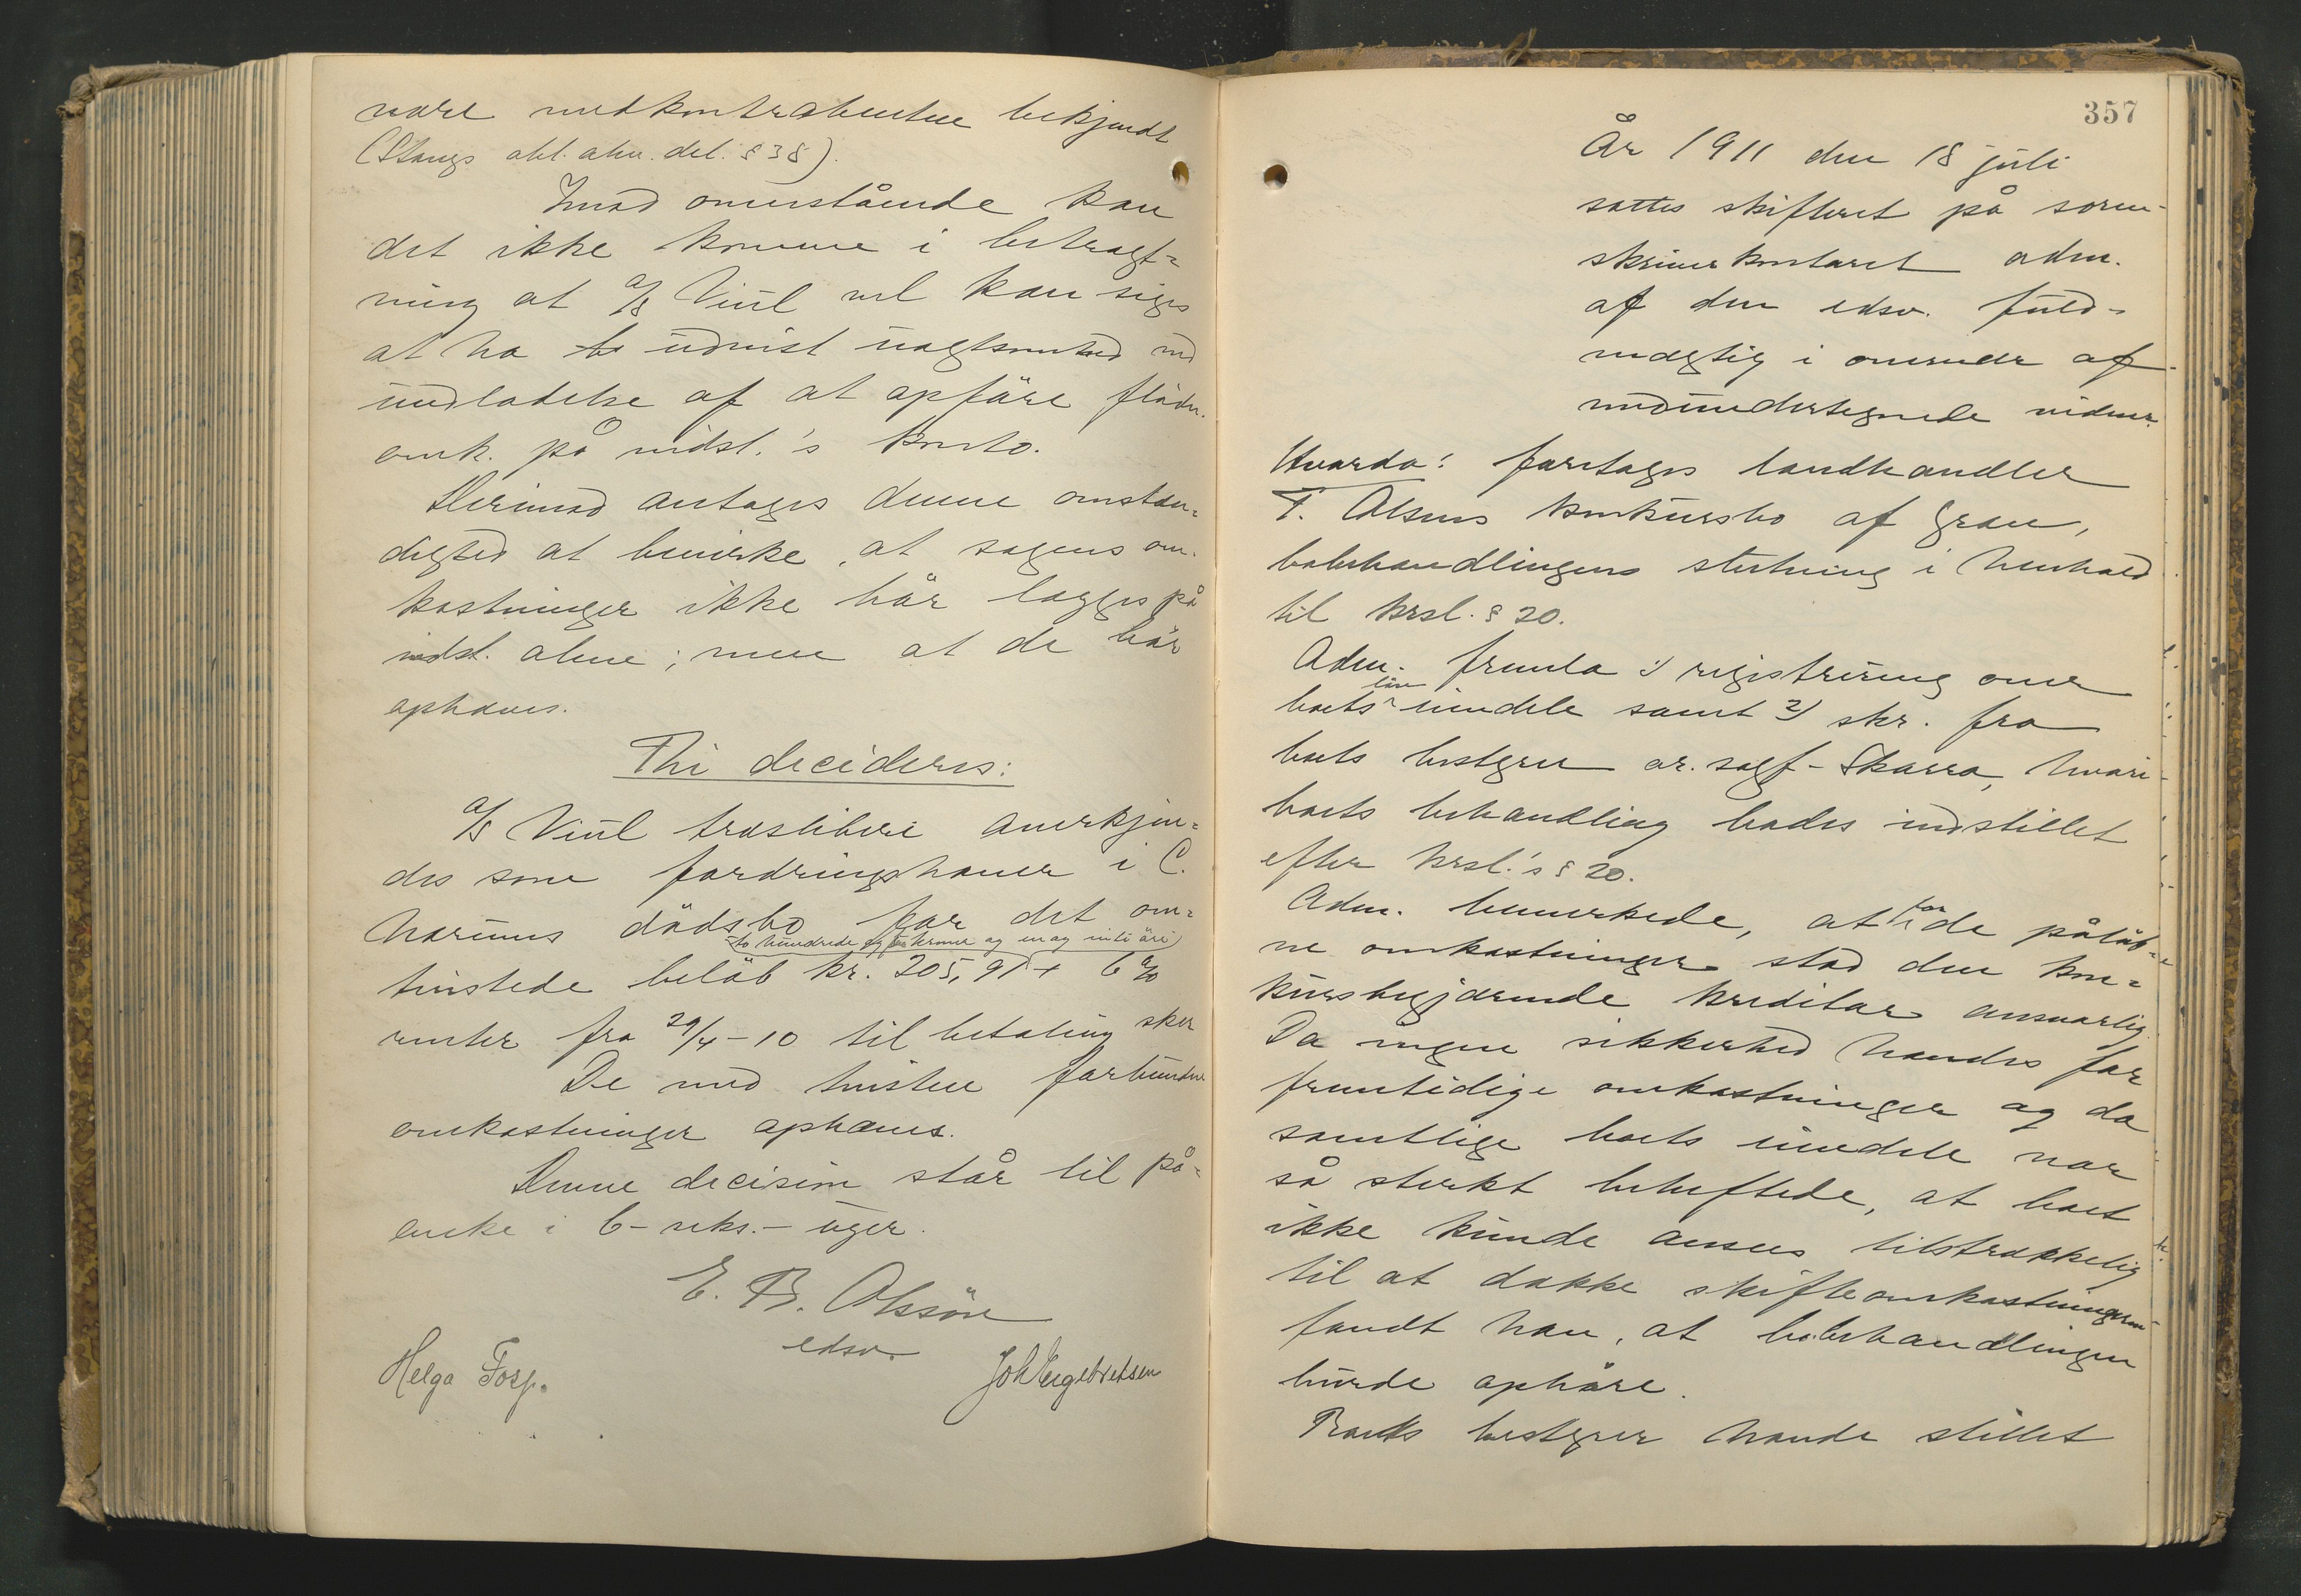 være medkontrahenten bekjendt
(Stangs obl. alm. del. § 38).
Imod ovenstående kan
det ikke komme i betragt-
ning at A/S Viul vel kan siges
at ha udvist uagtsomhed ved
undladelse af at opføre flådn.
omk. på vedst.'s konto.
Derimod antages denne omstæn-
dighed at bevirke, at sagens om-
kostninger ikke bør lægges på
indst. alene; men at de bør
ophæves.
Thi decideres:
A/S Viul træsliberi anerkjen-
des som fordringshaver i C.
Narums dødsbo for det om-
to hundrede og fem kroner og en og nitti øre
tvistede beløb kr. 205,91 + 6 %
renter fra 29/4-10 til betaling sker
De med tvisten forbundne
omkostninger ophæves.
Denne decision står til på-
anke i 6-seks.-uger.
E. B. Olssön
edsv.
Helga Fosp.
Joh Engebretsen
357
År 1911 den 18 juli
sattes skifteret på soren-
skriverkontoret adm.
af den edsv. fuld-
mægtig i overvær af
medundertegnede vidner.
Hvorda: foretages landhandler
T. Olsens konkursbo af Gran,
bobehandlingens slutning i henhold
til krsl. § 20.
Adm. fremla 1) registrering over
løse
boets ^ eiendele samt 2) skr. fra
boets bestyrer or. sagf. Skarra, hvori
boets behandling bades indstillet
efter krsl.'s § 20.
for
Adm. bemerkede, at ^ de påløb-
ne omkostninger stod den kon-
kursbegjærende kreditor ansvarlig.
Da ingen sikkerhed havdes for
fremtidige omkostninger og da
samtlige boets eiendele var
så sterkt beheftede, at boet
ikke kunde ansees tilstrækkelig
til at dække skifteomkostningerne
fandt han, at bobehandlingen
burde ophøre.
Boets bestyrer havde stillet